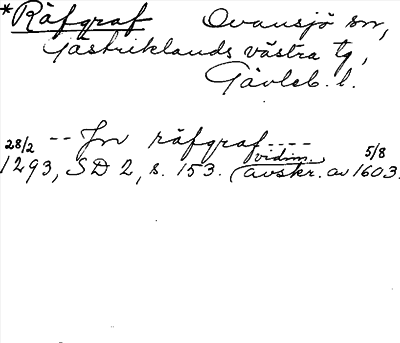 *Räfgraf Ovansjö sn,
Gästriklands västra tg,
Gävleb. l.
28/2 -- Jn räfgraf ---- vidim. 5/8
1293, SD 2, s. 153. (avskr. av 1603.